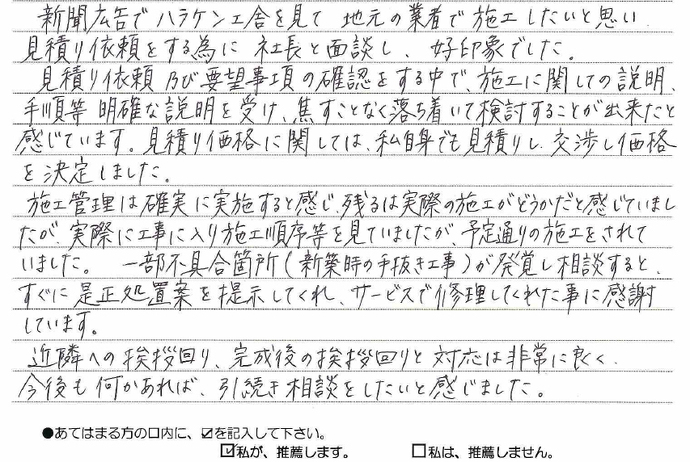 新聞広告でハラケン工舎を見て 地元の業者で施工したいと思い
見積り依頼をする為に 社長と面談し、好印象でした。
見積り依頼及び要望事項の確認をする中で、施工に関しての説明、
手順等 明確な説明を受け、焦すことなく落ち着いて検討することが出来たと
感じています。見積り価格に関しては、私自身でも見積りし、交渉し価格
を決定しました。
施工管理は確実に実施すると感じ、残るは実際の施工がどうかだと感じていまし
たが、実際に工事に入り施工順序等を見ていましたが、予定通りの施工をされて
いました。 一部不具合箇所(新築時の手抜き工事)が発覚し相談すると、
すぐに是正処置案を提示してくれ、サービスで修理してくれた事に感謝
しています。
近隣への挨拶回り、完成後の挨拶回りと対応は非常に良く、
今後も何かあれば、引続き相談をしたいと感じました。
●あてはまる方の口内に、☑を記入して下さい。
☑私が、推薦します。 □私は、推薦しません。